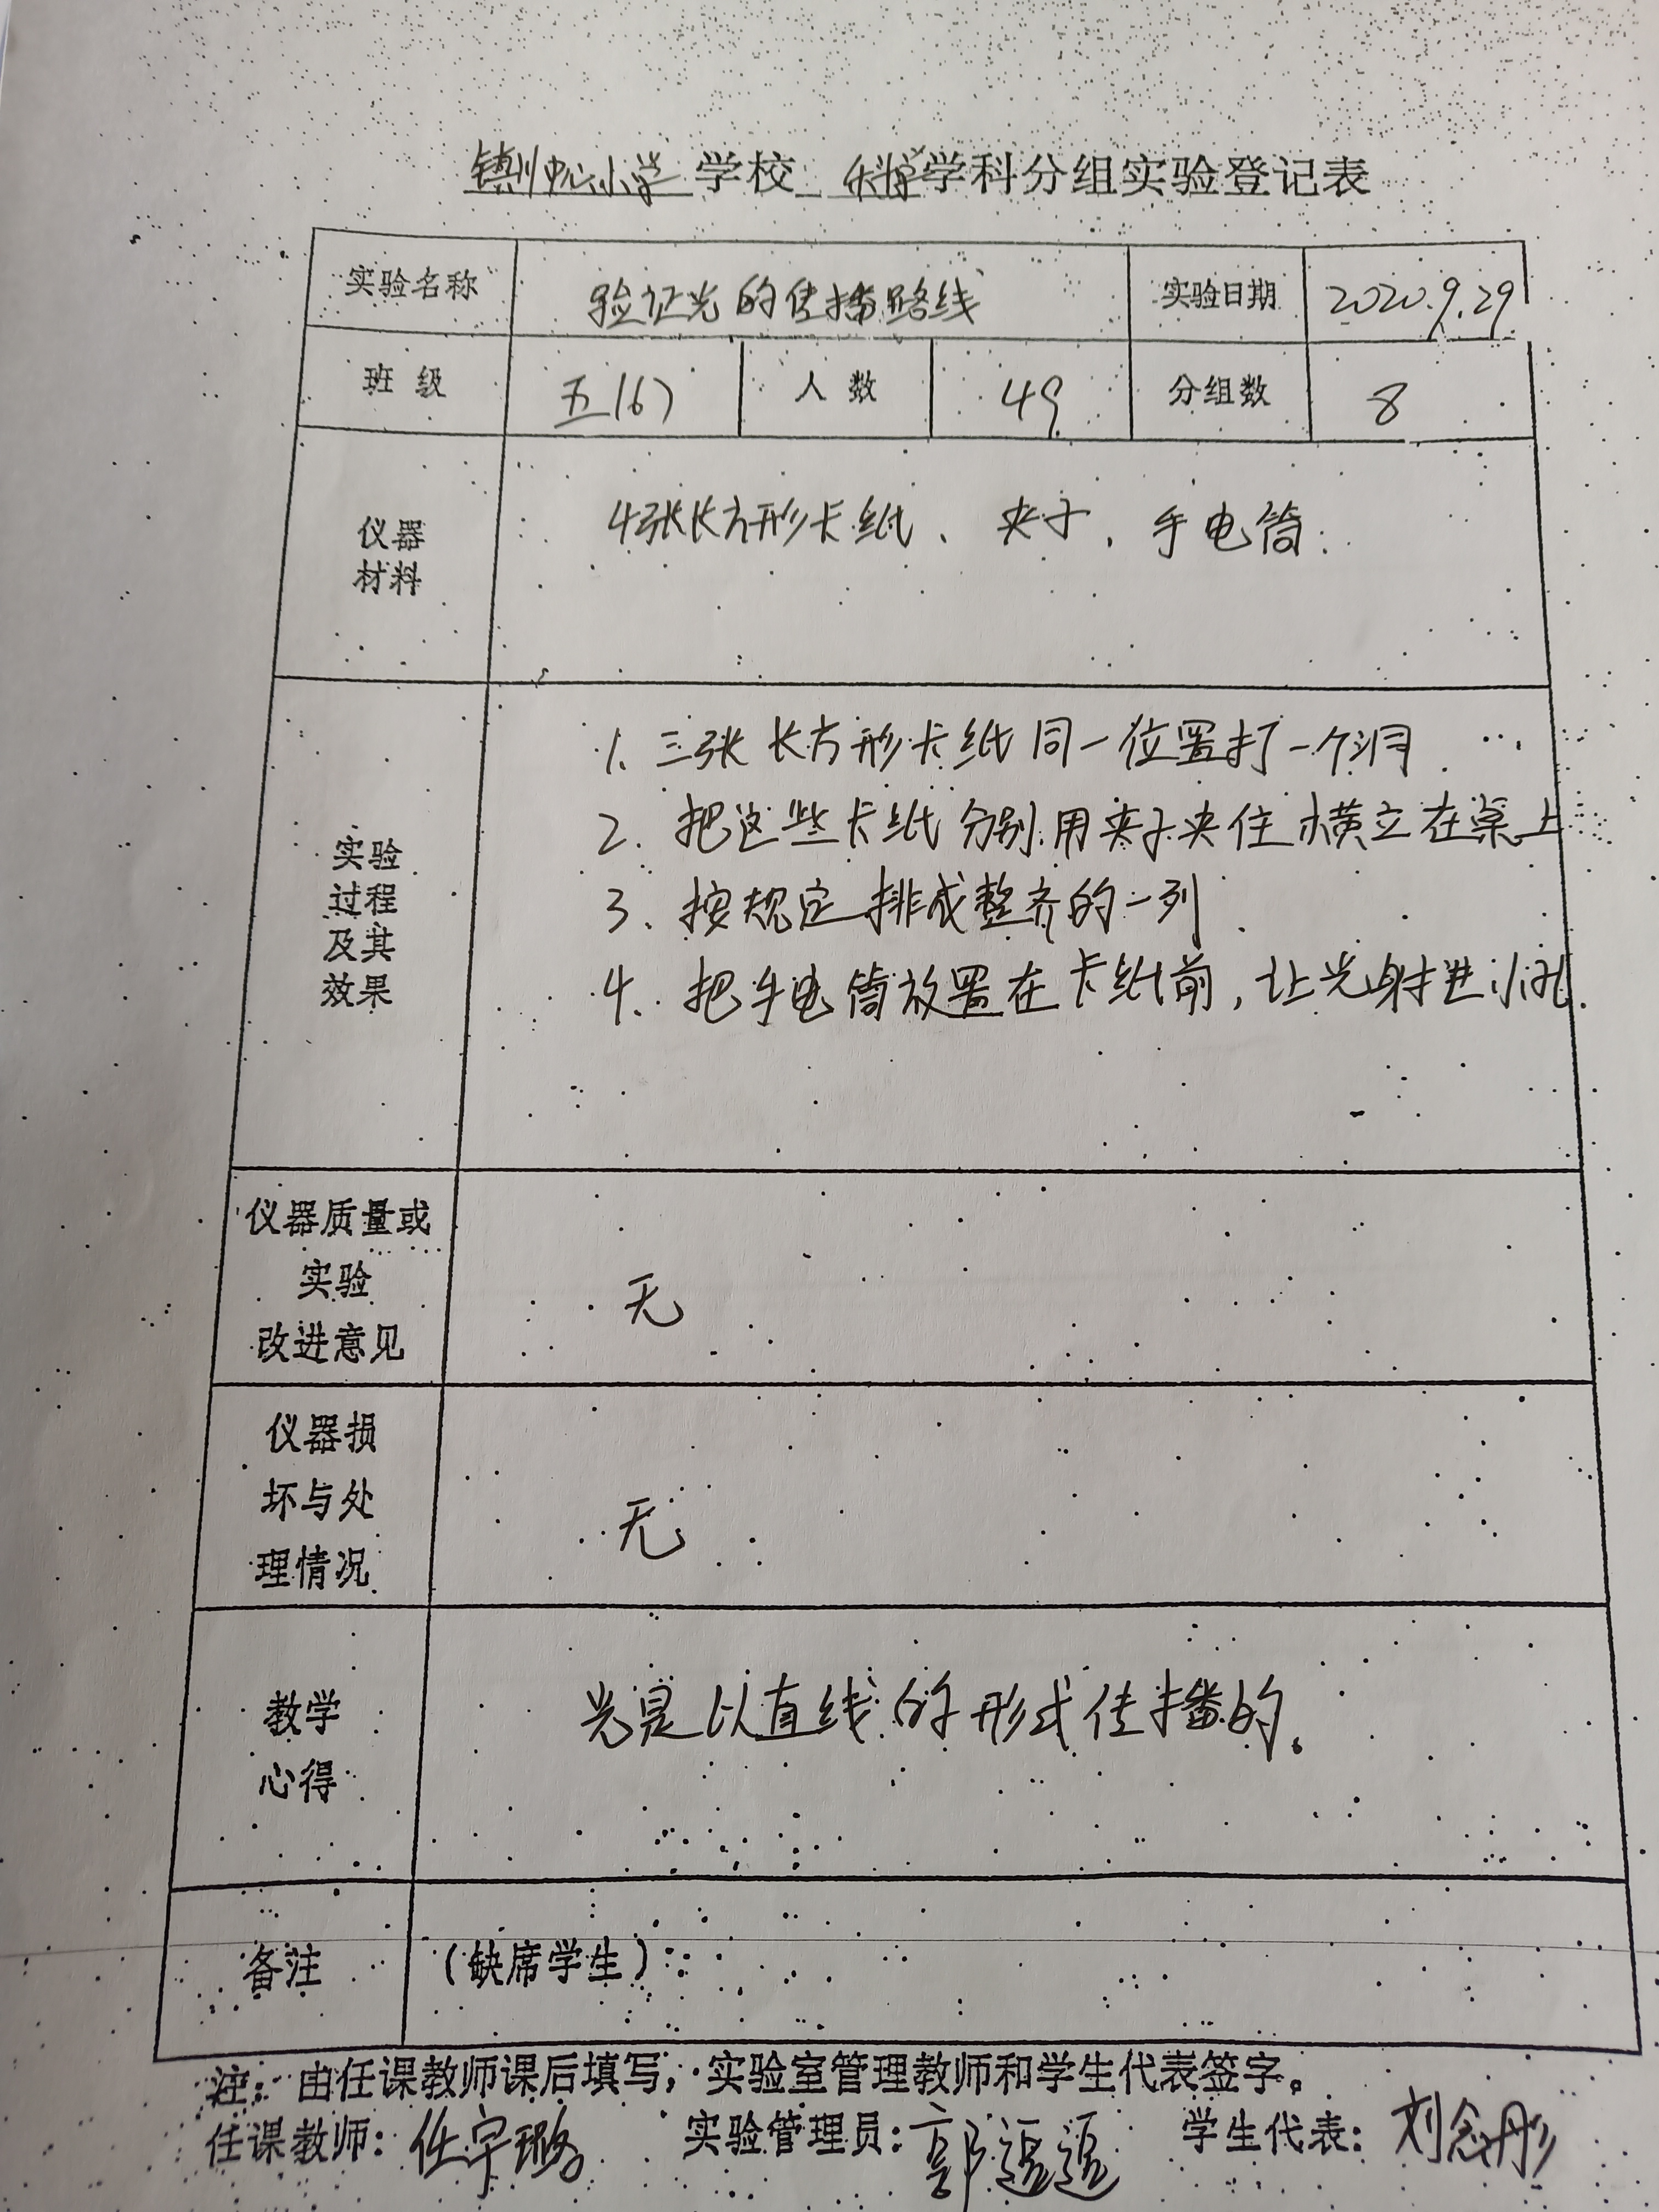 镇川中心小学学校 科学学科分组实验登记表
实验名称 验证光的传播路线 实验日期 2020.9.29
班级 五(6) 人数 49 分组数 8
仪器
材料
4张长方形卡纸、夹子、手电筒.
实验
过程
及其
效果
1. 三张长方形卡纸同一位置打一个洞.
2. 把这些卡纸分别用夹子夹住横立在桌上
3. 按规定排成整齐的一列.
4. 把手电筒放置在卡纸前,让光射进小孔.
仪器质量或
实验
改进意见
无
仪器损
坏与处
理情况
无
教学
心得
光是以直线的形式传播的。
备注 (缺席学生):
注:由任课教师课后填写,实验室管理教师和学生代表签字。
任课教师:任宇璐 实验管理员:郭 学生代表:刘念彤